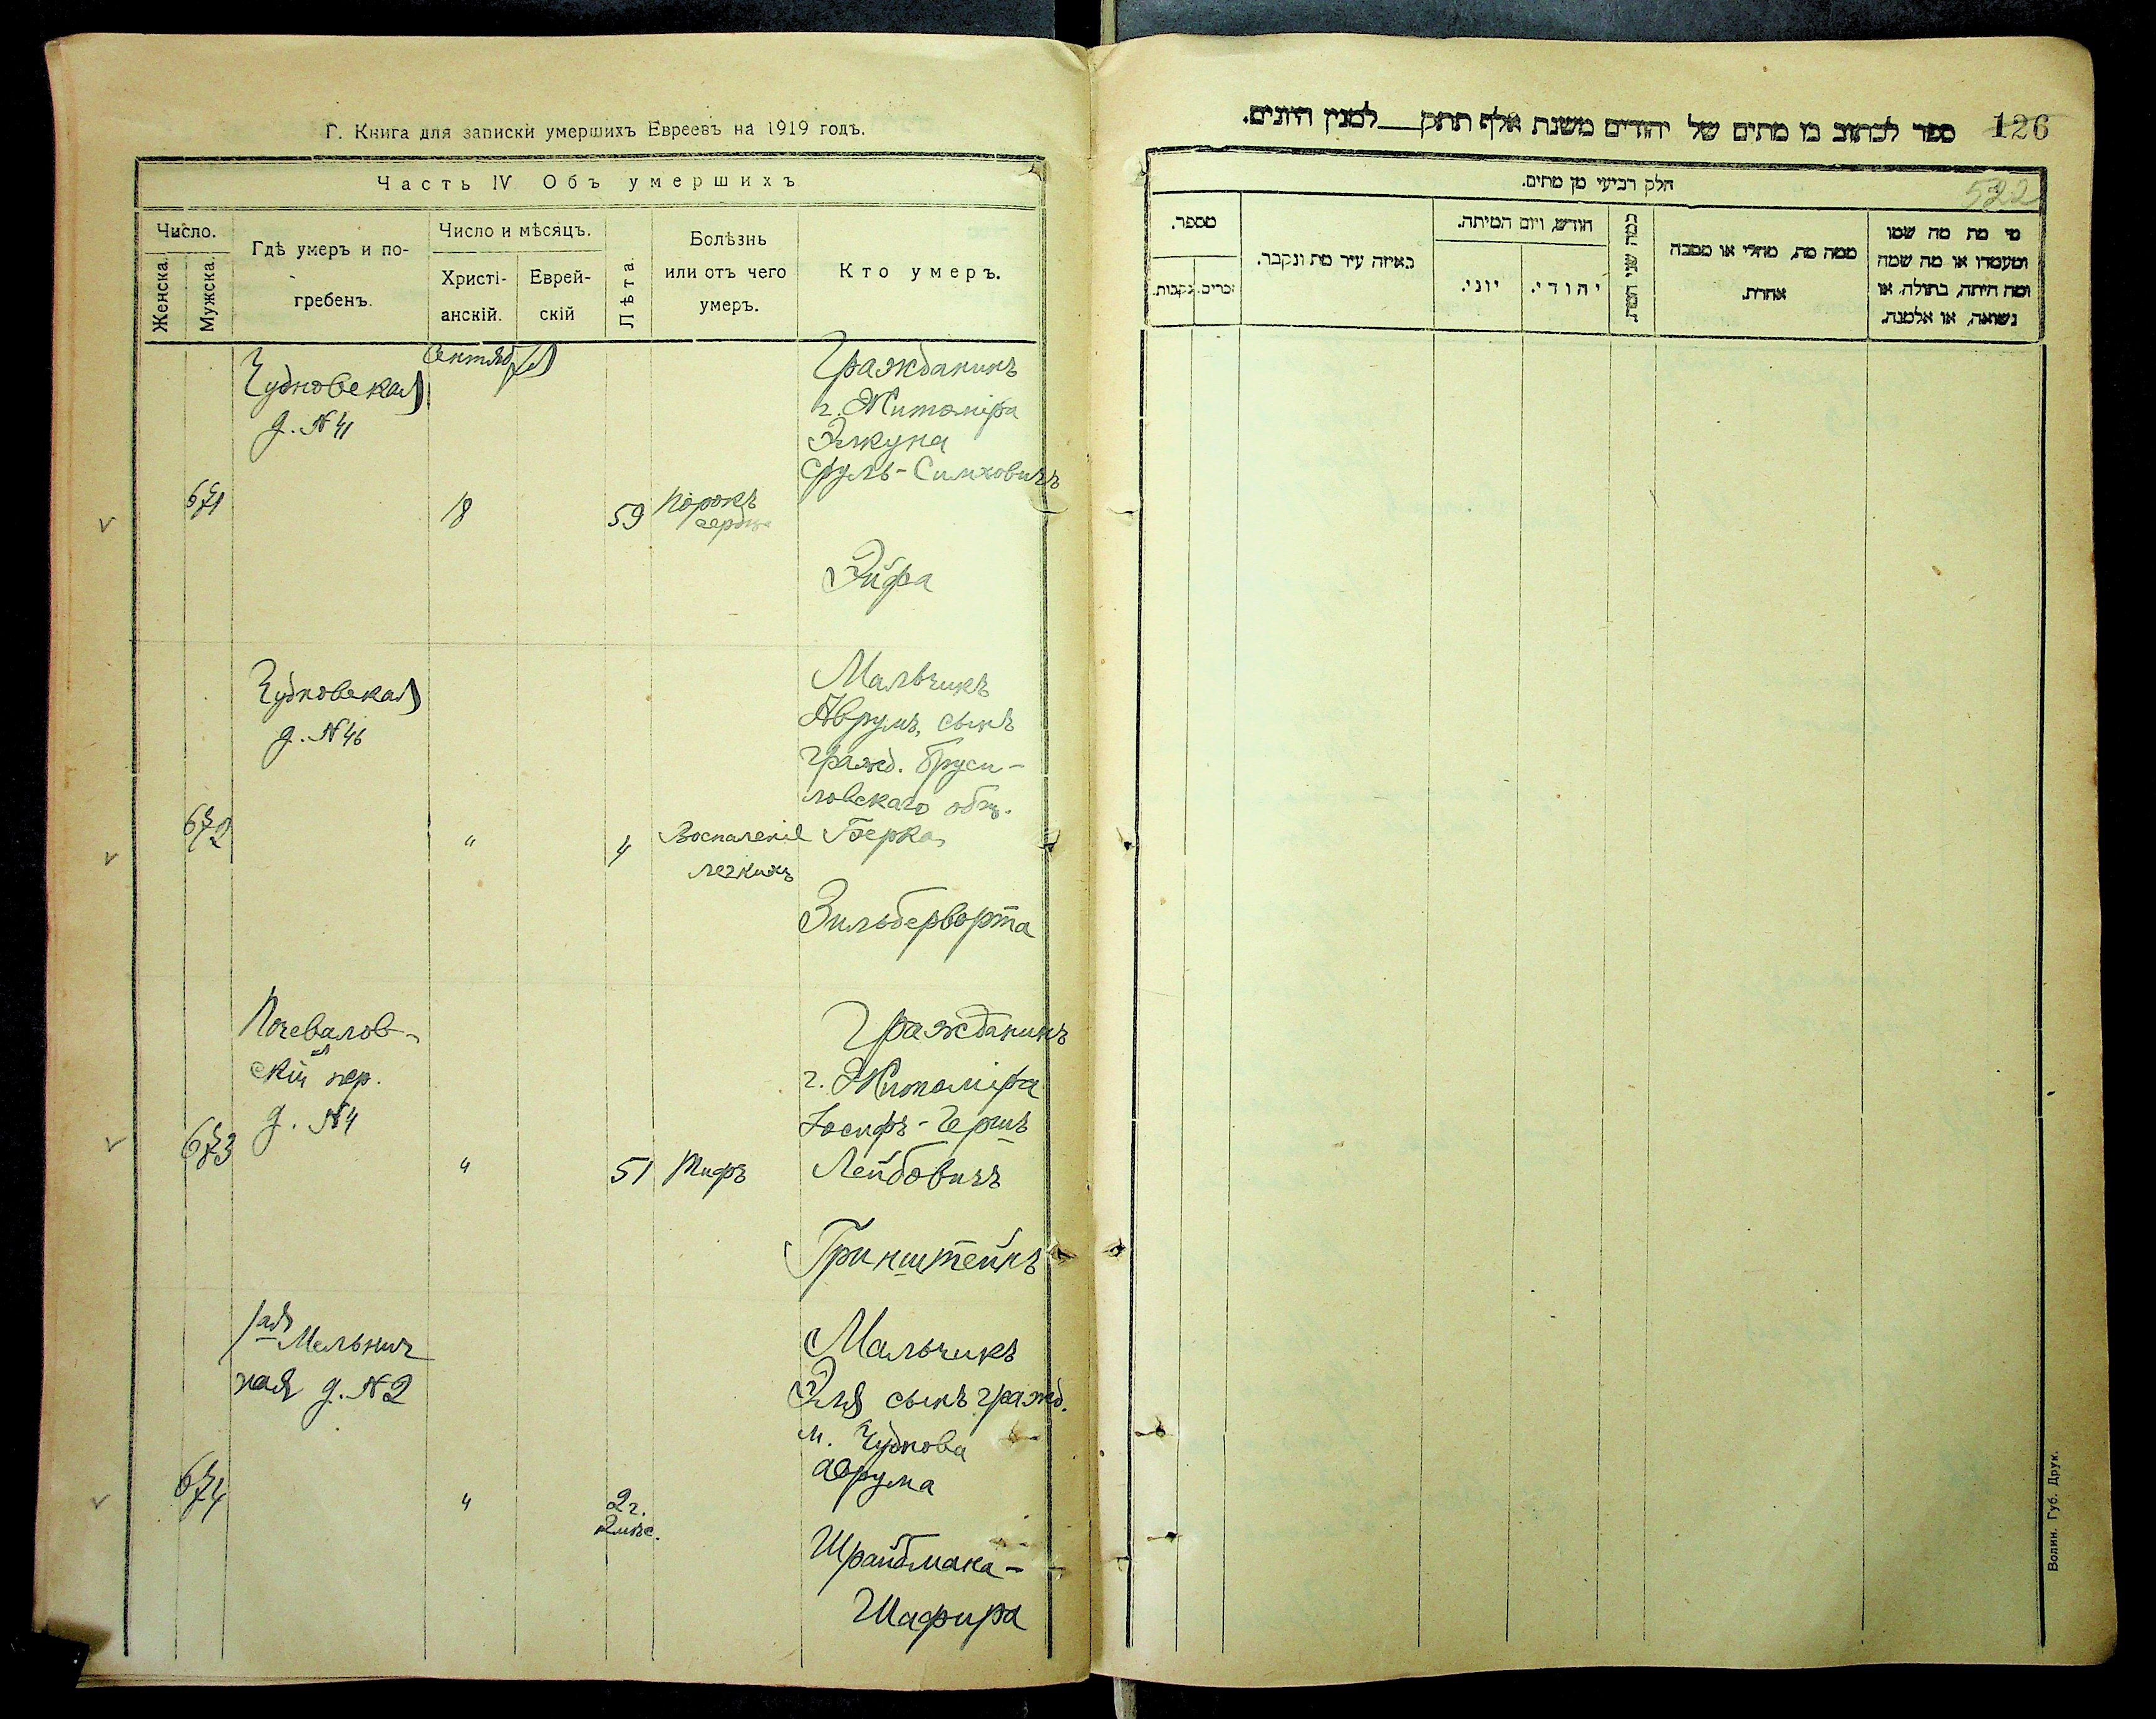 Г. Книга для записки умершихъ Евреевъ на 1919 годъ.
Часть IV Объ умершихъ
Число.
Женска.
Мужска.
Гдѣ умеръ и по-
гребенъ.
Число и мѣсяцъ.
Христі-
анскій.
Еврей-
скій
Лѣта.
Болѣзнь
или отъ чего
умеръ.
Кто умеръ.
Сентября
Чудновская
д. №41
671
18
59
Порокъ
сердца
Гражданинъ
г. Житоміра
Элкуна
Сруль-Симховичъ
Эйфа
Чудновская
д. №46
672
"
4
Воспаленіе
легкихъ
Мальчикъ
Аврумъ, сынъ
гражд. Бруси-
ловскаго общ.
Берка
Зильберворта
скій пер.
д. №4
673
"
51
Тифъ
Гражданинъ
г. Житоміра
Іосифъ-Гершъ
Лейбовичъ
Гринштейнъ
1ая Мельнич
ная д. №2
674
"
2 г.
2 мѣс.
Мальчикъ
Эля сынъ гражд.
м. Чуднова
Аврума
Шрайбмана-
Шафира
126
ספר לכתוב בו מתים של יהודים משנת אלף תתק__ למנין היונים.
522
חלק רביעי מן מתים.
מי מת מה שמו
ומעמדו או מה שמה
ומה היתה, בתולה או
נשואה, או אלמנה.
ממה מת, מחלי או מסבה
אחרת.
כמה שני המת
חודש, ויום המיתה.
יהודי.
יוני.
באיזה עיר מת ונקבר.
מספר.
זכרים.
נקבות.
Волин. Губ. Друк.